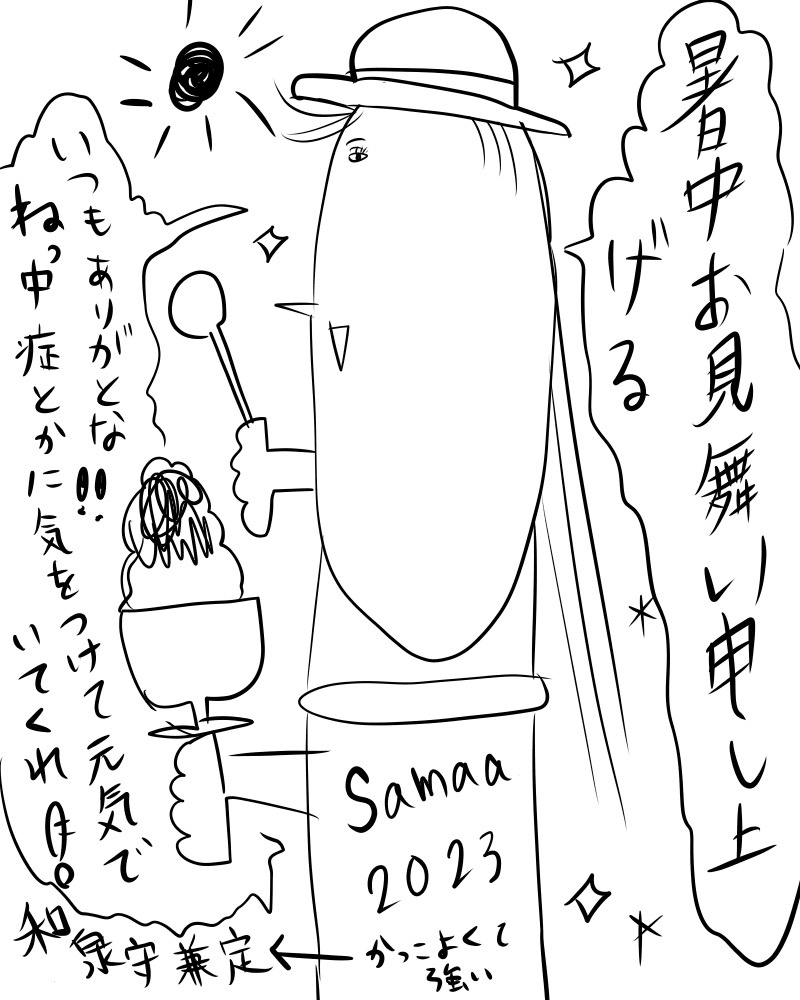 暑中お見舞い申し上
げる
いつもありがとな!!
ねっ中症とかに気をつけて元気で
いてくれよな。
Samaa
2023
かっこよくて
強い
和泉守兼定